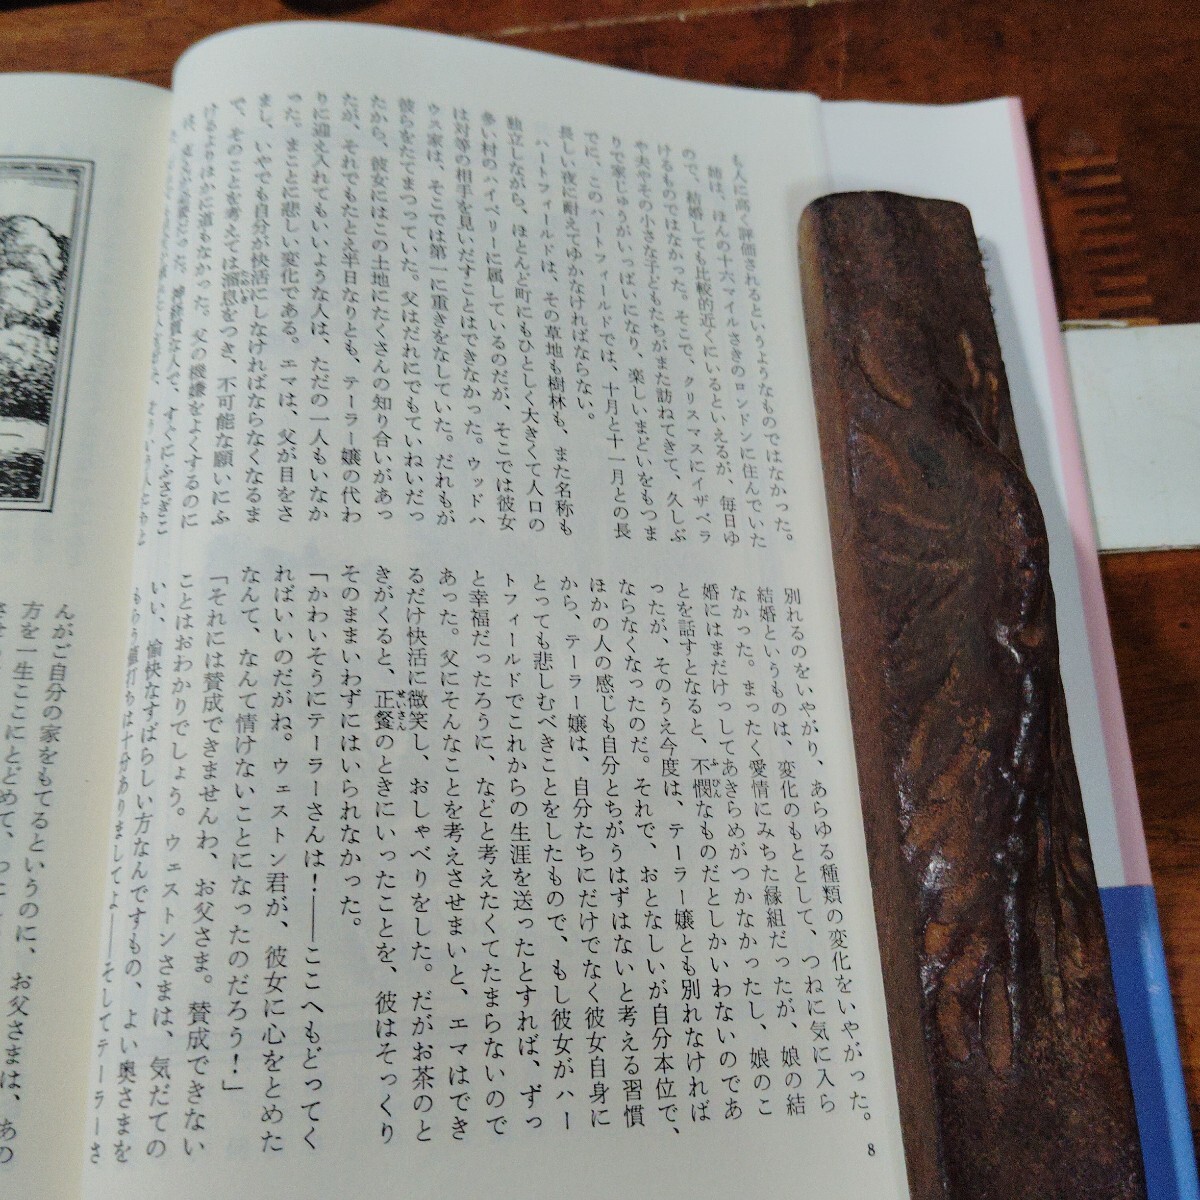 も人に高く評価されるというようなものではなかった。
姉は、ほんの十六マイルさきのロンドンに住んでいた
ので、結婚しても比較的近くにいるといえるが、毎日ゆ
けるものではなかった。そこで、クリスマスにイザベラ
や夫やその小さな子どもたちがまた訪ねてきて、久しぶ
りで家じゅうがいっぱいになり、楽しいまどいをもつま
でに、このハートフィールドでは、十月と十一月との長
長しい夜に耐えてゆかなければならない。
ハートフィールドは、その草地も樹林も、また名称も
独立しながら、ほとんど町にもひとしく大きくて人口の
多い村のハイベリーに属しているのだが、そこでは彼女
は対等の相手を見いだすことはできなかった。ウッドハ
ウス家は、そこでは第一に重きをなしていた。だれもが
彼らをたてまつっていた。父はだれにでもていねいだっ
たから、彼女にはこの土地にたくさんの知り合いがあっ
たが、それでもたとえ半日なりとも、テーラー嬢の代わ
りに迎え入れてもいいような人は、ただの一人もいなか
った。まことに悲しい変化である。エマは、父が目をさ
まし、いやでも自分が快活にしなければならなくなるま
で、そのことを考えては溜息をつき、不可能な願いにふ
けるよりほかに道もなかった。父の機嫌をよくするのに
は、支えが必要だった。神経質な人で、すぐにふさぎこ
別れるのをいやがり、あらゆる種類の変化をいやがった。
結婚というものは、変化のもととして、つねに気に入ら
なかった。まったく愛情にみちた縁組だったが、娘の結
婚にはまだけっしてあきらめがつかなかったし、娘のこ
とを話すとなると、不憫なものだとしかいわないのであ
ったが、そのうえ今度は、テーラー嬢とも別れなければ
ならなくなったのだ。それで、おとなしいが自分本位で、
ほかの人の感じも自分とちがうはずはないと考える習慣
から、テーラー嬢は、自分たちにだけでなく彼女自身に
とっても悲しむべきことをしたもので、もし彼女がハー
トフィールドでこれからの生涯を送ったとすれば、ずっ
と幸福だったろうに、などと考えたくてたまらないので
あった。父にそんなことを考えさせまいと、エマはでき
るだけ快活に微笑し、おしゃべりをした。だがお茶のと
きがくると、正餐のときにいったことを、彼はそっくり
そのままいわずにはいられなかった。
「かわいそうにテーラーさんは！――ここへもどってく
ればいいのだがね。ウェストン君が、彼女に心をとめた
なんて、なんて情けないことになったのだろう！」
「それには賛成できませんわ、お父さま。賛成できない
ことはおわかりでしょう。ウェストンさまは、気だての
いい、愉快なすばらしい方なんですもの、よい奥さまを
もらう値打ちは十分ありましてよ――そしてテーラーさ
8
んがご自分の家をもてるというのに、お父さまは、あの
方を一生ここにとどめて、